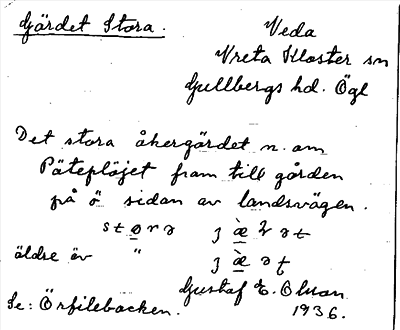 Gärdet Stora.
Veda
Vreta Kloster sn
Gullbergs hd. Ögl
Det stora åkergärdet n. om
Päteplöjet fram till gården
på ö sidan av landsvägen.
äldre äv "
Gustaf E. Olson
1936.
Se: Örfilebacken.